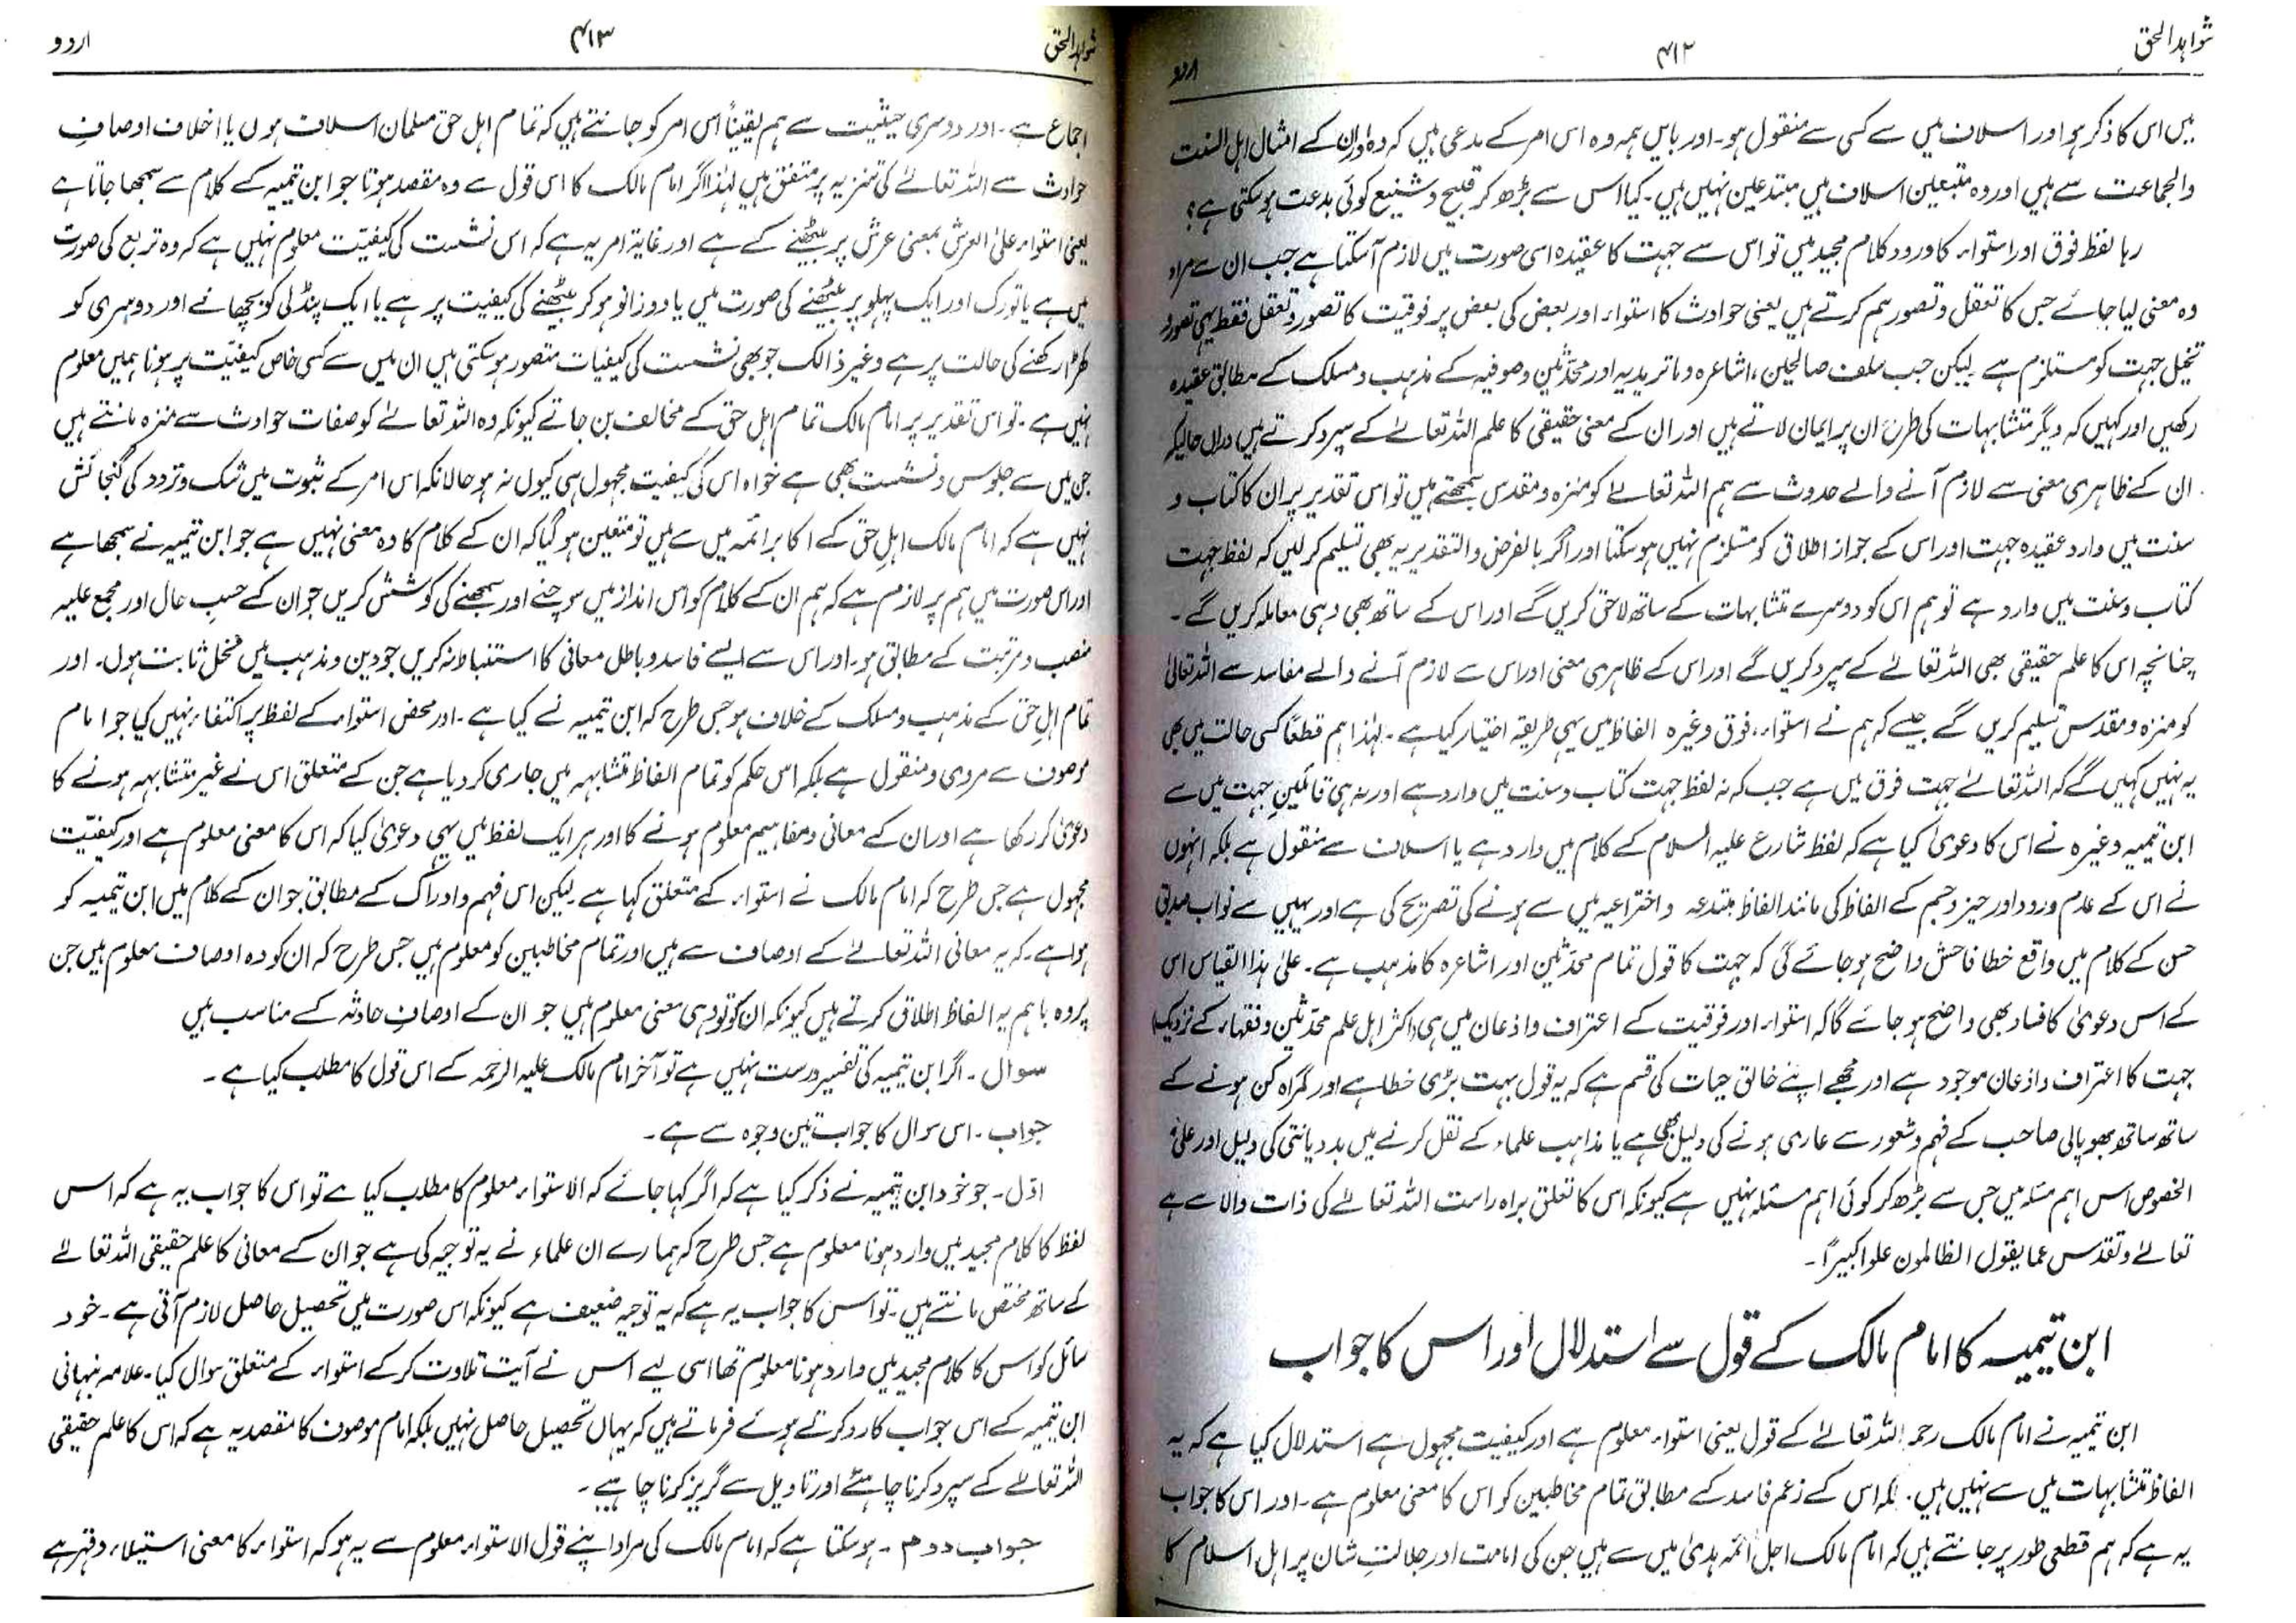 شواہدالحق
۴۱۲
اردو
ہیں اس کا ذکر ہو اور اسلاف میں سے کسی سے منقول ہو۔ اور بایں ہمہ وہ اس امر کے مدعی ہیں کہ وہ اور ان کے امثال اہل السنت
والجماعت سے ہیں اور وہ متبعین اسلاف ہیں مبتدعین نہیں ہیں۔ کیا اس سے بڑھ کر قبیح و شنیع کوئی بدعت ہوسکتی ہے؟
رہا لفظ فوق اور استواء کا ورود کلام مجید میں تو اس سے جہت کا عقیدہ اسی صورت میں لازم آسکتا ہے جب ان سے مراد
وہ معنی لیا جائے جس کا تعقل و تصور ہم کرتے ہیں یعنی حوادث کا استواء اور بعض کی بعض پر فوقیت کا تصور و تعقل فقط یہی تصور و
تخیل جہت کو مستلزم ہے۔ لیکن جب سلف صالحین، اشاعرہ و ماتریدیہ اور محدّثین و صوفیہ کے مذہب و مسلک کے مطابق عقیدہ
رکھیں اور کہیں کہ دیگر متشابہات کی طرح ان پر ایمان لاتے ہیں اور ان کے معنی حقیقی کا علم اللہ تعالےٰ کے سپرد کرتے ہیں دراں حالیکہ
ان کے ظاہری معنی سے لازم آنے والے حدوث سے ہم اللہ تعالےٰ کو منزہ و مقدس سمجھتے ہیں تو اس تقدیر پر ان کا کتاب و
سنت میں وارد عقیدہ جہت اور اس کے جواز اطلاق کو مستلزم نہیں ہوسکتا اور اگر بالفرض والتقدیر یہ بھی تسلیم کرلیں کہ لفظ جہت
کتاب و سنت میں وارد ہے تو ہم اس کو دوسرے متشابہات کے ساتھ لاحق کریں گے اور اس کے ساتھ بھی وہی معاملہ کریں گے۔
چنانچہ اس کا علم حقیقی بھی اللہ تعالےٰ کے سپرد کریں گے اور اس کے ظاہری معنی اور اس سے لازم آنے والے مفاسد سے اللہ تعالیٰ
کو منزہ و مقدس تسلیم کریں گے جیسے کہ ہم نے استواء، فوق وغیرہ الفاظ میں یہی طریقہ اختیار کیا ہے۔ لہٰذا ہم قطعًا کسی حالت میں بھی
یہ نہیں کہیں گے کہ اللہ تعالےٰ جہت فوق میں ہے جب کہ نہ لفظ جہت کتاب و سنت میں وارد ہے اور نہ ہی قائلینِ جہت میں سے
ابن تیمیہ وغیرہ نے اس کا دعویٰ کیا ہے کہ لفظ شارع علیہ السلام کے کلام میں وارد ہے یا اسلاف سے منقول ہے بلکہ انہوں
نے اس کے عدم ورود اور حیز و جسم کے الفاظ کی مانند الفاظ مبتدعہ و اختراعیہ میں سے ہونے کی تصریح کی ہے اور یہیں سے نواب صدیق
حسن کے کلام میں واقع خطا فاحش واضح ہوجائے گی کہ جہت کا قول تمام محدّثین اور اشاعرہ کا مذہب ہے۔ علیٰ ہذا القیاس اس
کے اس دعویٰ کا فساد بھی واضح ہو جائے گا کہ استواء اور فوقیت کے اعتراف و اذعان میں ہی اکثر اہل علم محدّثین و فقہاء کے نزدیک
جہت کا اعتراف و اذعان موجود ہے اور مجھے اپنے خالق حیات کی قسم ہے کہ یہ قول بہت بڑی خطا ہے اور گمراہ کن ہونے کے
ساتھ ساتھ بھوپالی صاحب کے فہم و شعور سے عاری ہونے کی دلیل بھی ہے یا مذاہب علماء کے نقل کرنے میں بددیانتی کی دلیل اور علیٰ
الخصوص اس اہم مسئلہ میں جس سے بڑھ کر کوئی اہم مسئلہ نہیں ہے کیونکہ اس کا تعلق براہ راست اللہ تعالےٰ کی ذات والا سے ہے
تعالےٰ و تقدس عما یقول الظالمون علوا کبیرًا۔
ابن تیمیہ کا امام مالک کے قول سے استدلال اور اس کا جواب
ابن تیمیہ نے امام مالک رحمہ اللہ تعالےٰ کے قول یعنی استواء معلوم ہے اور کیفیت مجہول ہے استدلال کیا ہے کہ یہ
الفاظ متشابہات میں سے نہیں ہیں۔ بلکہ اس کے زعم فاسد کے مطابق تمام مخاطبین کو اس کا معنی معلوم ہے۔ اور اس کا جواب
یہ ہے کہ ہم قطعی طور پر جانتے ہیں کہ امام مالک اجل ائمہ ہدیٰ میں سے ہیں جن کی امامت اور جلالتِ شان پر اہل اسلام کا
شواہدالحق
۴۱۳
اردو
اجماع ہے۔ اور دوسری حیثیت سے ہم یقیناً اس امر کو جانتے ہیں کہ تمام اہل حق مسلمان اسلاف ہوں یا اخلاف اوصافِ
حوادث سے اللہ تعالےٰ کی تنزیہ پر متفق ہیں لہٰذا اگر امام مالک کا اس قول سے وہ مقصد ہوتا جو ابن تیمیہ کے کلام سے سمجھا جاتا ہے
یعنی استواء علیٰ العرش بمعنی عرش پر بیٹھنے کے ہے اور غایۃ امر یہ ہے کہ اس نشست کی کیفیّت معلوم نہیں ہے کہ وہ تربع کی صورت
میں ہے یا تورک اور ایک پہلو پر بیٹھنے کی صورت میں یا دوزانو ہوکر بیٹھنے کی کیفیت پر ہے یا ایک پنڈلی کو بچھانے اور دوسری کو
کھڑا رکھنے کی حالت پر ہے وغیر ذالک جو بھی نشست کی کیفیات متصور ہوسکتی ہیں ان میں سے کسی خاص کیفیّت پر ہونا ہمیں معلوم
نہیں ہے۔ تو اس تقدیر پر امام مالک تمام اہل حق کے مخالف بن جاتے کیونکہ وہ اللہ تعالےٰ کو صفات حوادث سے منزہ مانتے ہیں
جن میں سے جلوس و نشست بھی ہے خواہ اس کی کیفیت مجہول ہی کیوں نہ ہو حالانکہ اس امر کے ثبوت میں شک و تردد کی گنجائش
نہیں ہے کہ امام مالک اہل حق کے اکابر ائمہ میں سے ہیں تو متعین ہوگیا کہ ان کے کلام کا وہ معنی نہیں ہے جو ابن تیمیہ نے سمجھا ہے
اور اس صورت میں ہم پر لازم ہے کہ ہم ان کے کلام کو اس انداز میں سوچنے اور سمجھنے کی کوشش کریں جو ان کے حسبِ حال اور مجمع علیہ
منصب و مرتبت کے مطابق ہو۔ اور اس سے ایسے فاسد و باطل معانی کا استنباط نہ کریں جو دین و مذہب میں مخل ثابت ہوں۔ اور
تمام اہل حق کے مذہب و مسلک کے خلاف ہو جس طرح کہ ابن تیمیہ نے کیا ہے۔ اور محض استواء کے لفظ پر اکتفاء نہیں کیا جو امام
موصوف سے مروی و منقول ہے بلکہ اس حکم کو تمام الفاظ متشابہہ میں جاری کردیا ہے جن کے متعلق اس نے غیر متشابہہ ہونے کا
دعویٰ کر رکھا ہے اور ان کے معانی و مفاہیم معلوم ہونے کا اور ہر ایک لفظ میں یہی دعویٰ کیا کہ اس کا معنی معلوم ہے اور کیفیّت
مجہول ہے جس طرح کہ امام مالک نے استواء کے متعلق کہا ہے۔ لیکن اس فہم و ادراک کے مطابق جو ان کے کلام میں ابن تیمیہ کو
ہوا ہے۔ کہ یہ معانی اللہ تعالےٰ کے اوصاف سے ہیں اور تمام مخاطبین کو معلوم ہیں جس طرح کہ ان کو وہ اوصاف معلوم ہیں جن
پر وہ باہم یہ الفاظ اطلاق کرتے ہیں کیونکہ ان کو تو وہی معنی معلوم ہیں جو ان کے اوصافِ حادثہ کے مناسب ہیں
سوال۔ اگر ابن تیمیہ کی تفسیر درست نہیں ہے تو آخر امام مالک علیہ الرحمۃ کے اس قول کا مطلب کیا ہے۔
جواب۔ اس سوال کا جواب تین وجوہ سے ہے۔
اوّل۔ جو خود ابن تیمیہ نے ذکر کیا ہے کہ اگر کہا جائے کہ الاستواء معلوم کا مطلب کیا ہے تو اس کا جواب یہ ہے کہ اس
لفظ کا کلام مجید میں وارد ہونا معلوم ہے جس طرح کہ ہمارے ان علماء نے یہ توجیہ کی ہے جو ان کے معانی کا علم حقیقی اللہ تعالےٰ
کے ساتھ مختص مانتے ہیں۔ تو اس کا جواب یہ ہے کہ یہ توجیہ ضعیف ہے کیونکہ اس صورت میں تحصیل حاصل لازم آتی ہے۔ خود
سائل کو اس کا کلام مجید میں وارد ہونا معلوم تھا اسی لیے اس نے آیت تلاوت کرکے استواء کے متعلق سوال کیا۔ علامہ نبہانی
ابن تیمیہ کے اس جواب کا رد کرتے ہوئے فرماتے ہیں کہ یہاں تحصیل حاصل نہیں بلکہ امام موصوف کا مقصد یہ ہے کہ اس کا علم حقیقی
اللہ تعالےٰ کے سپرد کرنا چاہئے اور تاویل سے گریز کرنا چاہیے۔
جواب دوم۔ ہوسکتا ہے کہ امام مالک کی مراد اپنے قول الاستواء معلوم سے یہ ہو کہ استواء کا معنی استیلاء و قہر ہے